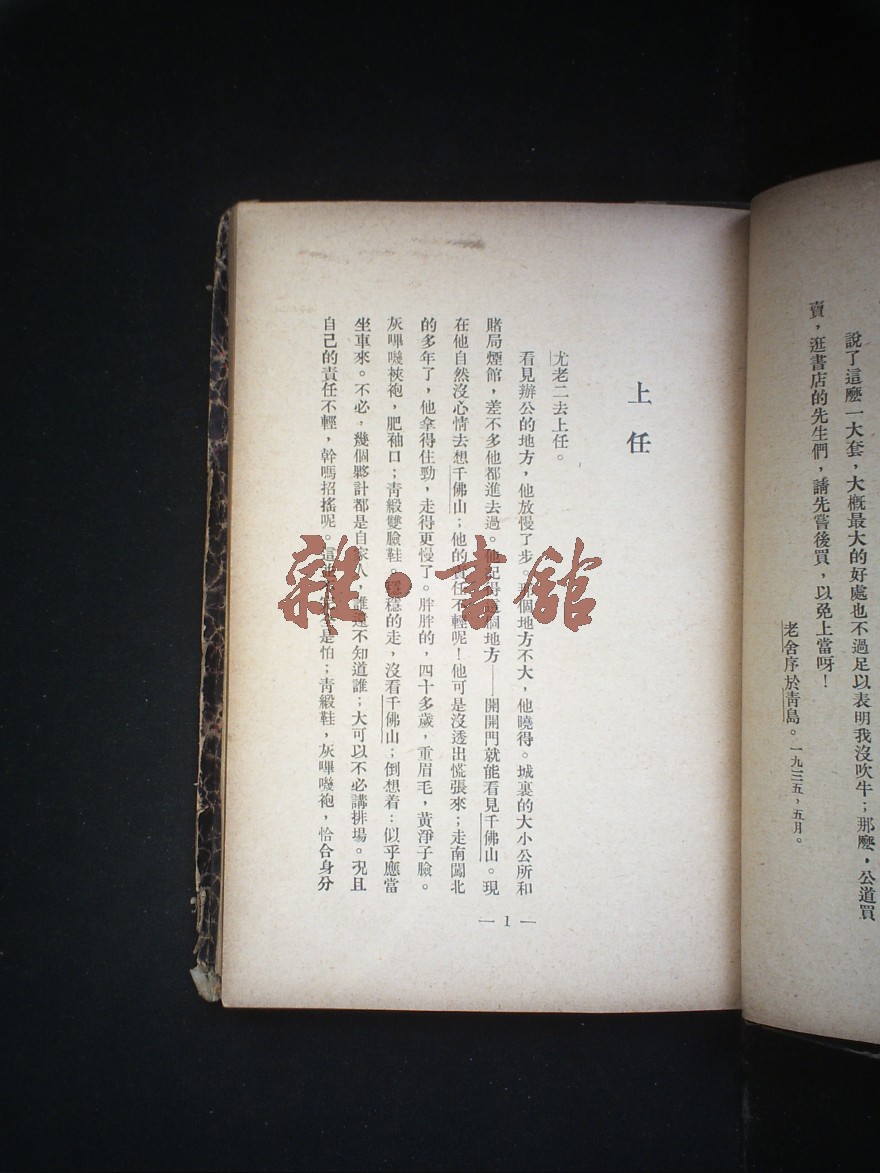 說了這麼一大套，大概最大的好處也不過足以表明我沒吹牛；那麼，公道買
賣，逛書店的先生們，請先嘗後買，以免上當呀！
老舍序於靑島。一九三五，五月。
上任
尤老二去上任。
看見辦公的地方，他放慢了步。那個地方不大，他曉得。城裏的大小公所和
賭局煙館，差不多他都進去過。他記得這個地方——開開門就能看見千佛山。現
在他自然沒心情去想千佛山；他的責任不輕呢！他可是沒透出慌張來；走南闖北
的多年了，他拿得住勁，走得更慢了。胖胖的，四十多歲，重眉毛，黃淨子臉。
灰嗶嘰裌袍，肥袖口；靑緞雙臉鞋。穩的走，沒看千佛山；倒想着：似乎應當
坐車來。不必，幾個夥計都是自家人，誰還不知道誰；大可以不必講排場。况且
自己的責任不輕，幹嗎招搖呢。這是怕；靑緞鞋，灰嗶嘰袍，恰合身分
— 1 —
雜·書館